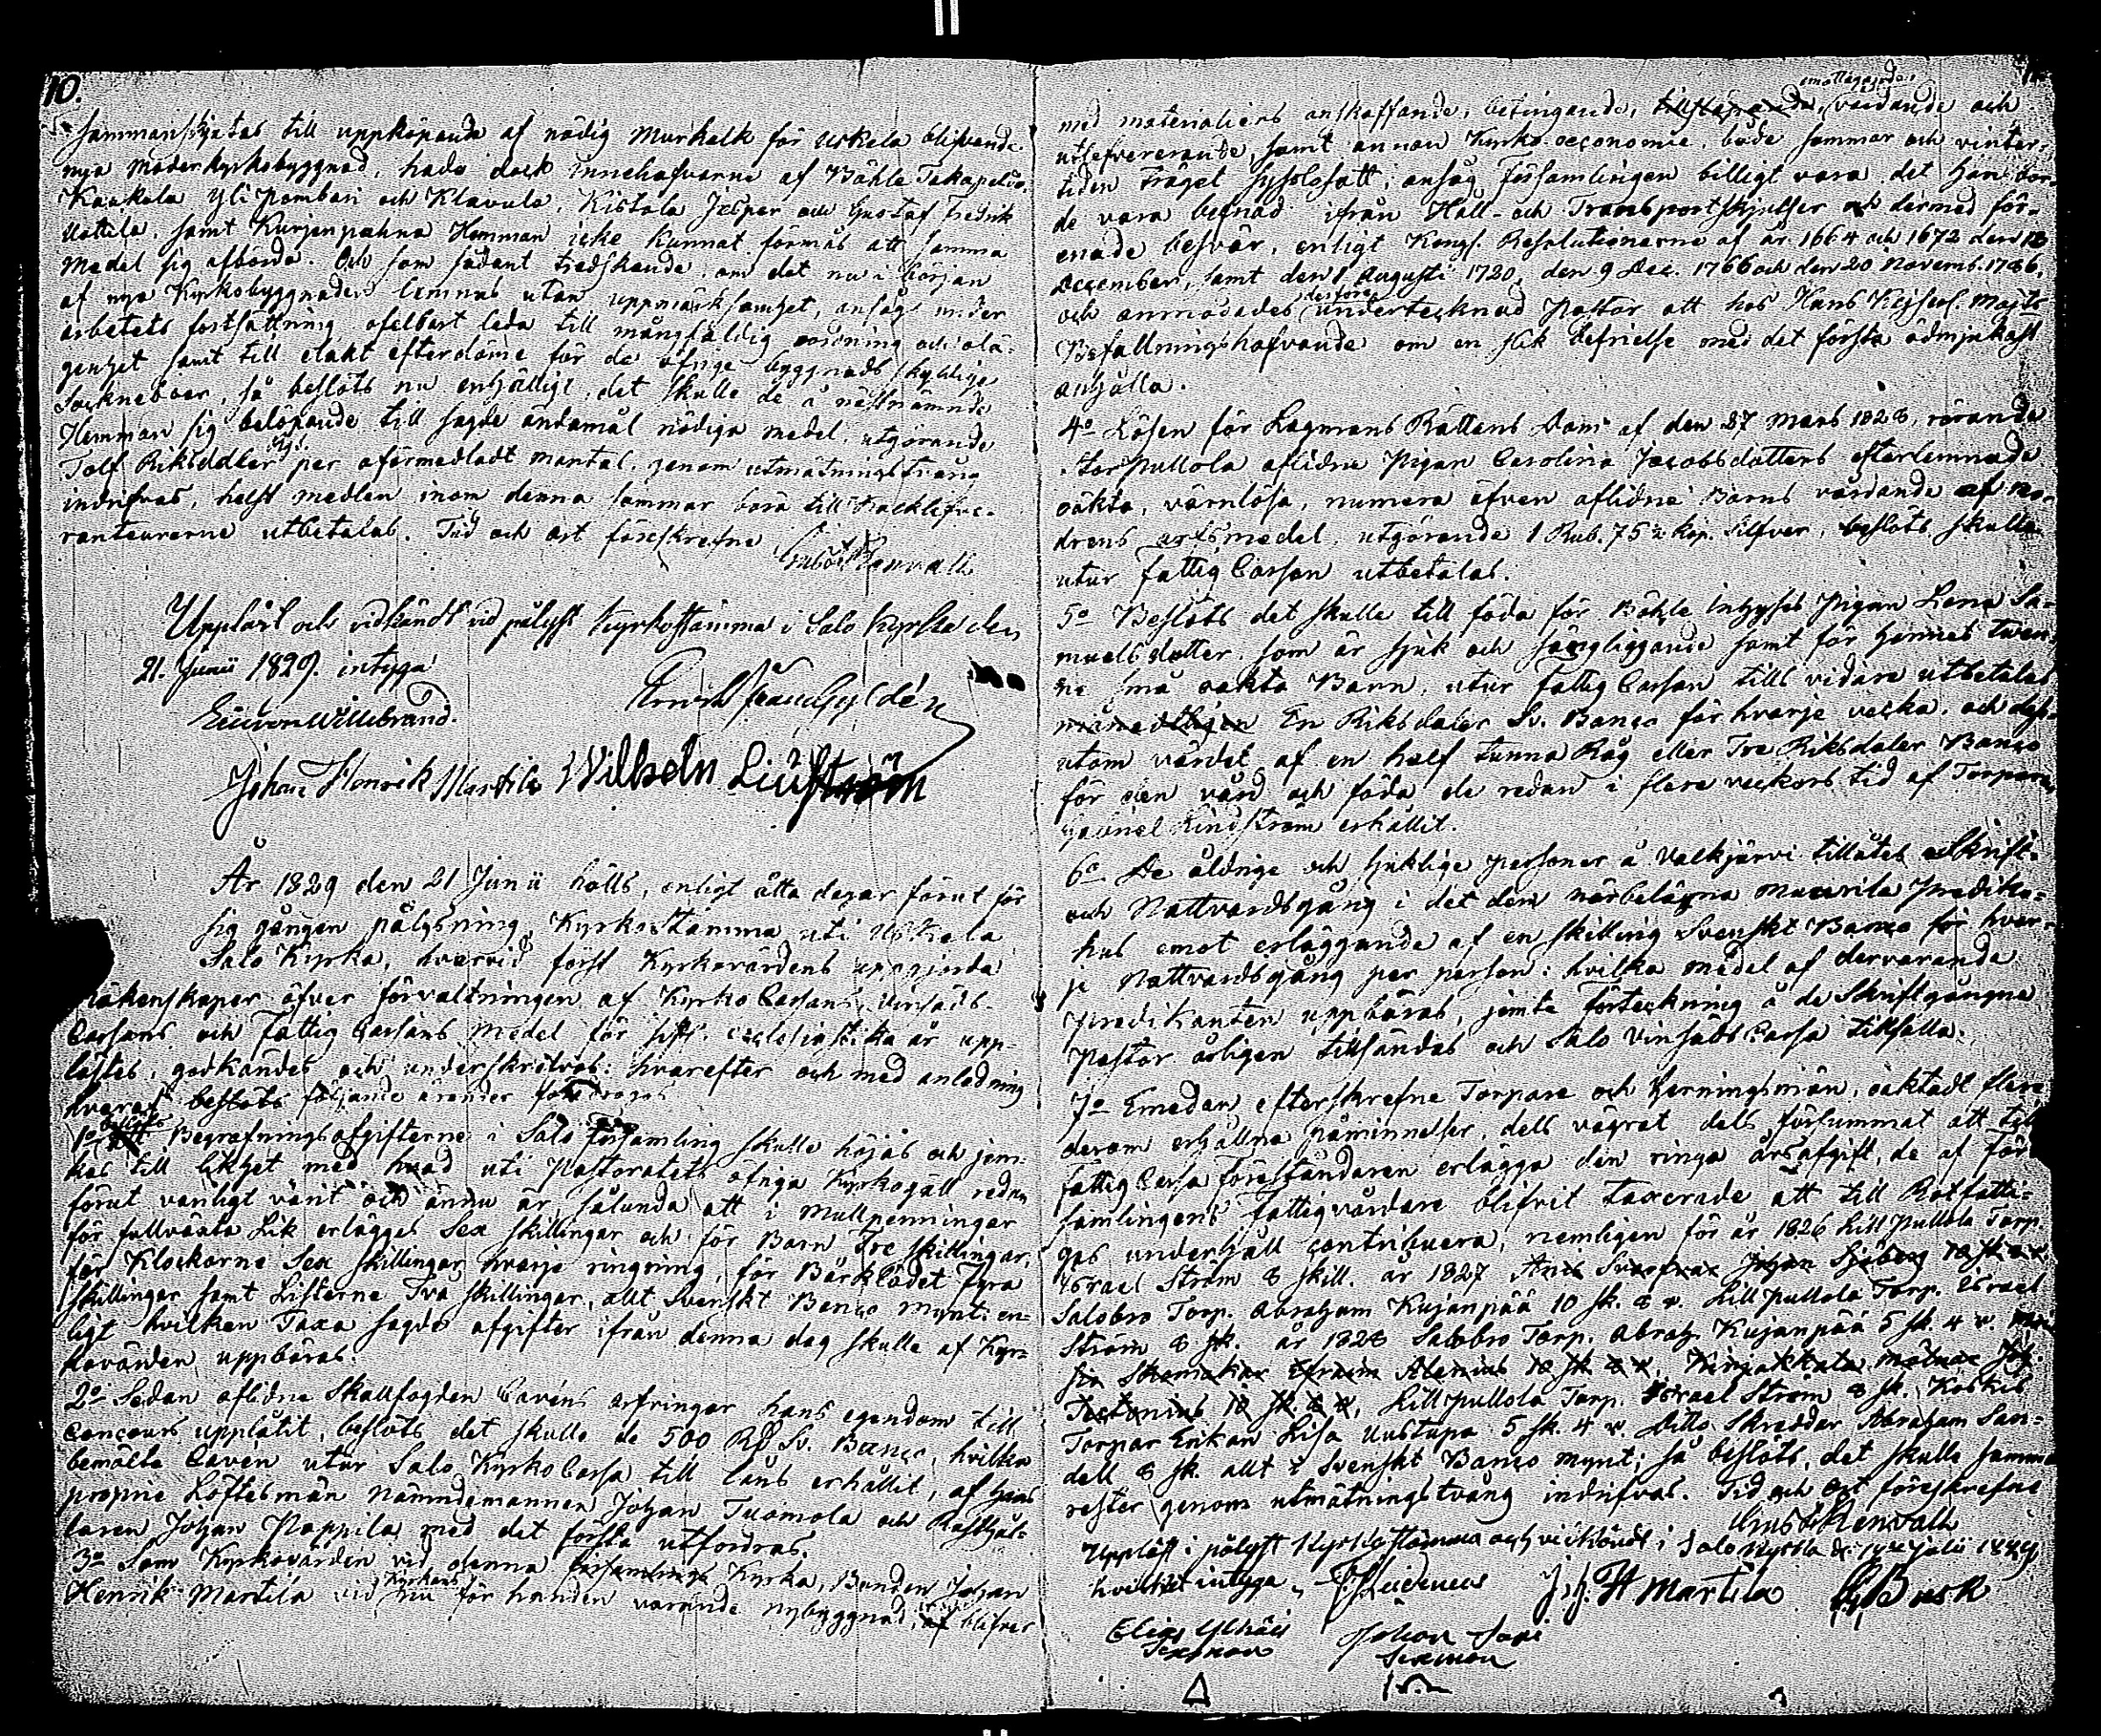 10.
sammanskjutas till uppköpande af nödig Murkalk för Uskela blifvande
nya Moderkyrkobyggnad, hade dock innehafvarne af Båhle Takapelto,
Kaukola Yli Pembari och Klavula, Kistola Jesper och Gustaf Fredrik
Uottila, samt Kurjenpahna Hemman icke kunnat förmås att samma
medel sig afbörda. Och som sådant tredskande, om det nu i början
af nya Kyrkobyggnaden lemnas utan uppmärksamhet, ansågs under
arbetets fortsättning ofelbart leda till mångfaldig oordning och olä-
genhet samt till elakt efterdöme för de öfrige byggnads skyldige
Sockneboer, så beslöts nu enhälligt, det skulle de å näst nämnde
Hemman sig belöpande till sagde ändamål nödiga medel, utgörande
Tolf Riksdaler Rgs. per oförmedladt mantal, genom utmätningstvång
indrifvas, helst medlen inom denna sommar böra till Kalklefve-
ranteurerne utbetalas. Tid och ort föreskrefne
Gust. Renvall
Uppläst och vidkändt vid pålyst Kyrkostämma i Salo Kyrka den
21. Junii 1829. intyga
von Willebrand.
Johan Henrik Martila Wilhelm Liüström
År 1829 den 21 Junii hölls, enligt åtta dagar förut för
sig gången pålysning, Kyrkostämma uti Uskela
Salo Kyrka, hvarvid först Kyrkovärdens uppgjorda
räkenskaper öfver förvaltningen af Kyrko Cassans, Vinsäds-
Cassans och Fattig Cassans medel för sistl. ecclesiastika år upp-
lästes, godkändes och underskrefvos: hvarefter och med anledning
hvaraf beslöts följande ärender företogos
1o beslöts Att Begrafningsafgifterne i Salo församling skulle höjas och jem-
kas till likhet med hvad uti Pastoratets öfriga Kyrkogäll redan
förut vanligt varit och ännu är, sålunda att i Mullpenningar
för fullväxta Lik erlägges Sex skillingar och för Barn Tre skillingar,
för Klockorne Sex skillingar hvarje ringning, för Bårklädet Fyra
skillingar samt Listerne Två skillingar, allt Svenskt Banco mynt: en-
ligt hvilken Taxa sagde afgifter ifrån denna dag skulle af Kyr-
kovärden uppbäras.
2o Sedan aflidne Skallfogden Cavéns arfvingar hans egendom till
Concours upplåtit, beslöts det skulle de 500 Rd Sv. Banco, hvilka
bemälte Cavén utur Salo Kyrko Cassa till låns erhållit, af hans
proprie Löftesmän Nämndemannen Johan Tuomola och Rusthål-
laren Johan Pappila med det första utfordras.
3o Som Kyrkovärden vid denna församlings Kyrka, Bonden Johan
Henrik Martila vid Kyrkans nu för handen varande nybyggnad, af blifver
med materialiers anskaffande, betingande, tillskapande, emottagande, vårdande och
utlefvererande, samt annan Kyrko-oeconomie, både sommar och vinter-
tiden träget sysslosatt; ansåg Församlingen billigt vara det han bor-
de vara befriad ifrån Håll- och Transportskjutser och dermed för-
enade besvär, enligt Kongl. Resolutionerne af år 1664 och 1672 den 18
December, samt den 1 Augusti 1720, den 9 Dec. 1766 och den 20 Novemb. 1786,
och anmodades derföre undertecknad Pastor att hos Hans Kejserl. Majts
Befallningshafvande om en slik befrielse med det första ödmjukast
anhålla.
4o Lösen för Lagmans Rättens Dom af den 27 Mars 1828, rörande
Storpullola aflidne Pigan Carolina Jacobsdotters efterlemnade
oäkta, värnlösa, numera äfven aflidne Barns vårdande af mo-
drens arfsmedel, utgörande 1 Rub. 75½ kop. Silfver, beslöts skulle
utur Fattig Cassan utbetalas.
5o Beslöts det skulle till föda för Båhle Inhyses Pigan Lena Sa-
muelsdotter, som är sjuk och sängliggande samt för hennes tven-
ne små oäkta Barn, utur Fattig Cassan tills vidare utbetalas
månadtligen En Riksdaler Sv. Banco för hvarje vecka, och dess-
utom värdet af en half tunna Råg eller Tre Riksdaler Banco
för den vård och föda de redan i flere veckors tid af Torparen
Gabriel Lindström erhållit.
6o De åldrige och sjuklige personer å Valkjärvi tillåtes Skrift-
och Nattvardsgång i det dem närbelägna Muurila Prediko-
hus emot erläggande af en skilling Svenskt Banco för hvar-
je Nattvardsgång per person: hvilka medel af dervarande
Predikanten uppbäras, jemte förteckning å de Skriftgångne
Pastor årligen tillsändas och Salo Vinsäds Cassa tillfalla.
7o Emedan efterskrefne Torpare och Gerningsmän, oaktadt flere
derom erhållne påminnelser, dels vägrat dels försummat att till
Fattig Cassa föreståndaren erlägga den ringa årsafgift, de af För-
samlingens Fattigvårdare blifvit taxerade att till Rotfatti-
gas underhåll contribuera, nemligen för år 1826 Lillpullola Torp.
Israel Ström 8 skill. år 1827 Johan Sjöberg
Salobro Torp. Abraham Kujanpää 10 sk. 8 r. Lillpullola Torp. Israel
Ström 8 sk. år 1828 Salobro Torp. Abrah. Kujanpää 5 sk. 4 r.
Skomakar Efraim Alenius 10 sk. 8 r.
10 sk. 8 r, Lillpullola Torp. Israel Ström 8 sk. Koskis
Torpar Enkan Lisa Uustupa 5 sk. 4 r. Ditto Skreddar Abraham San-
dell 8 sk. allt i Svenskt Banco mynt; så beslöts, det skulle samma
rester genom utmätningstvång indrifvas. Tid och Ort föreskrefne
Gust. Renvall
Uppläst i pålyst Kyrkostämma och vidkändt i Salo Kyrka d. Julii 1829
hvilket intyga, J. H. Martila
Sexman Johan
Sexman